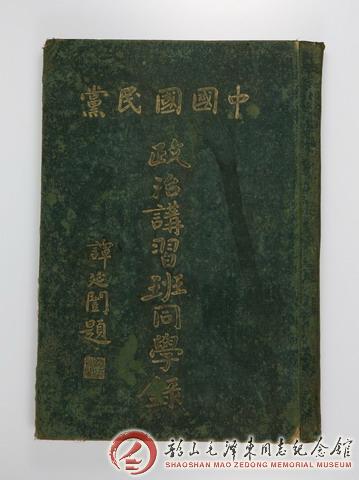 中國國民黨
政治講習班同學錄
譚延闓題
韶山毛澤東同志紀念館
SHAOSHAN MAO ZEDONG MEMORIAL MUSEUM